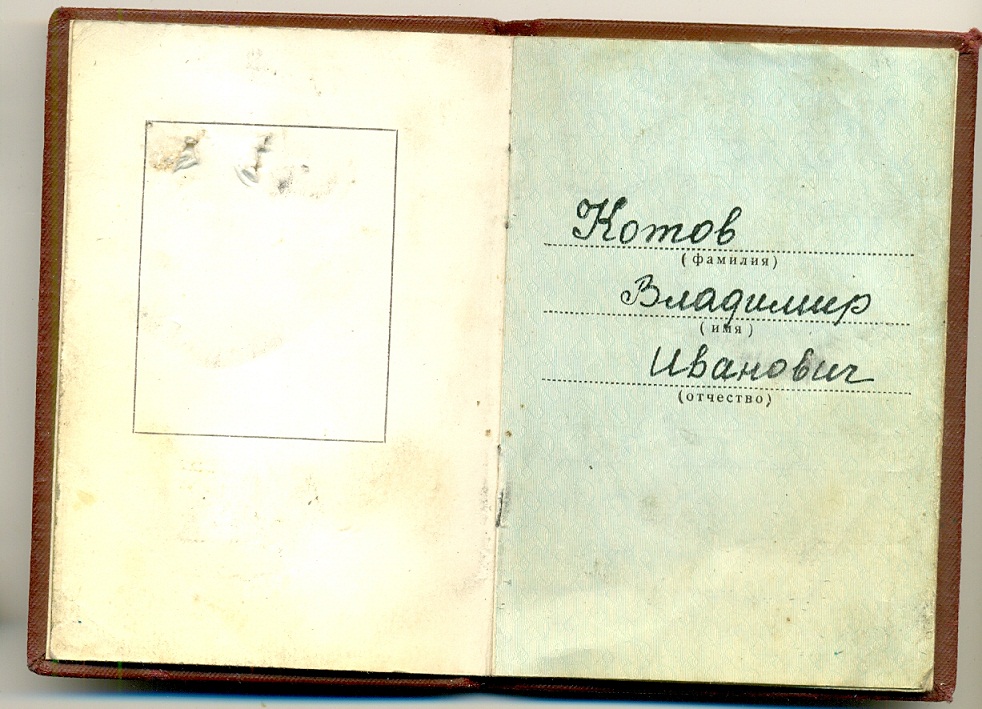 Котов
(фамилия)
Владимир
(имя)
Иванович
(отчество)